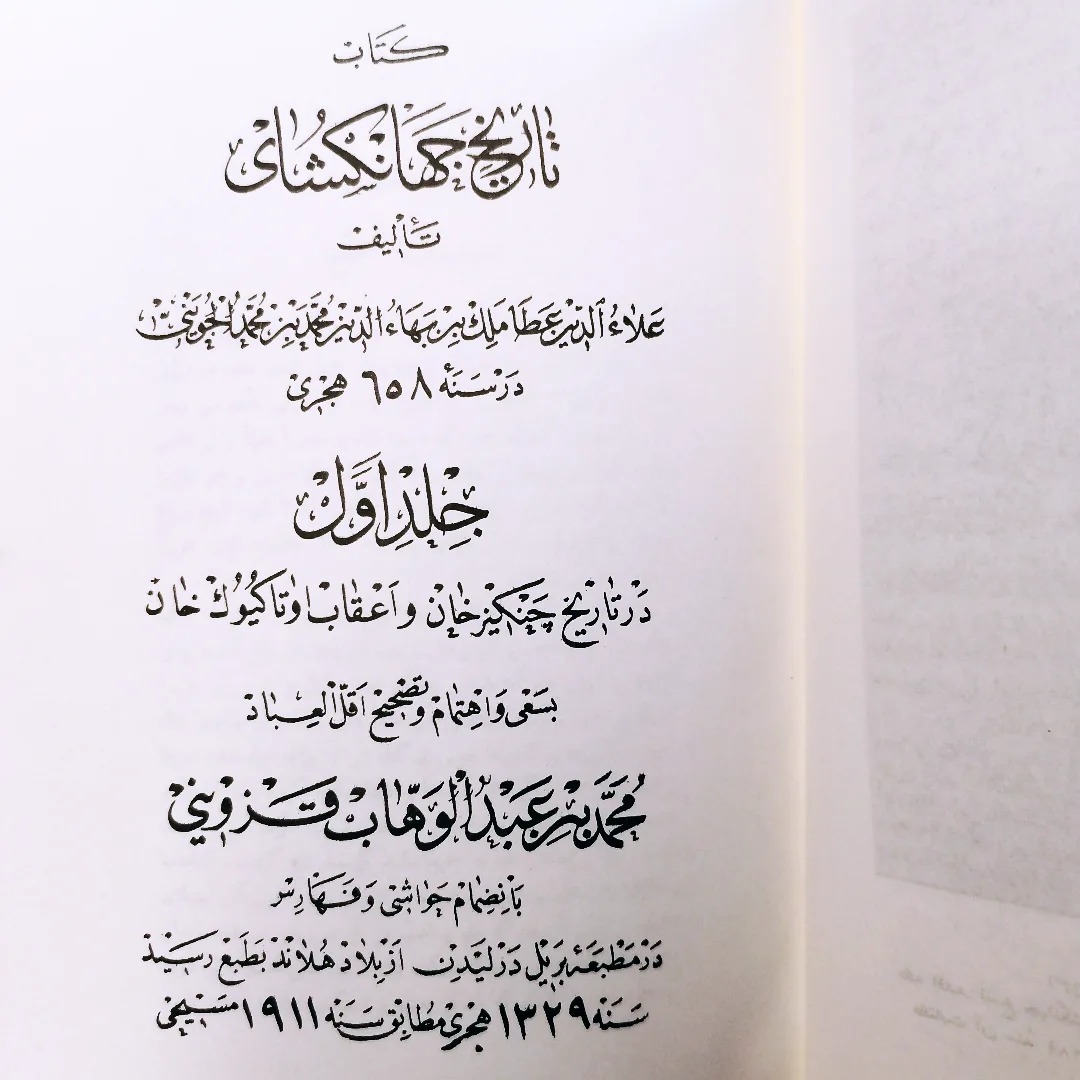 كتاب
تاريخ جهانكشاى
تأليف
علاء الدين عطا ملك بن بهاء الدين محمد بن محمد الجوينى
در سنهٔ ٦٥٨ هجرى
جلد اوّل
در تاريخ چنكيز خان و اعقاب او تا كيوك خان
بسعى و اهتمام و تصحيح اقلّ العباد
محمّد بن عبد الوهّاب قزوينى
بانضمام حواشى و فهارس
در مطبعهٔ بريل در ليدن از بلاد هلاند بطبع رسيد
سنه ١٣٢٩ هجرى مطابق سنه ١٩١١ مسيحى